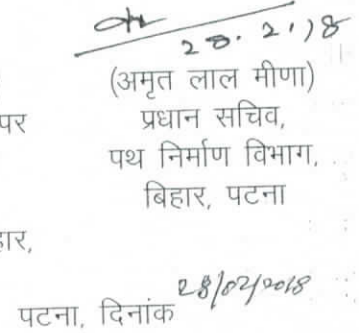 28.2.18
(अमृत लाल मीणा)
पर प्रधान सचिव,
पथ निर्माण विभाग,
बिहार, पटना
हार,
पटना, दिनांक 28/02/2018